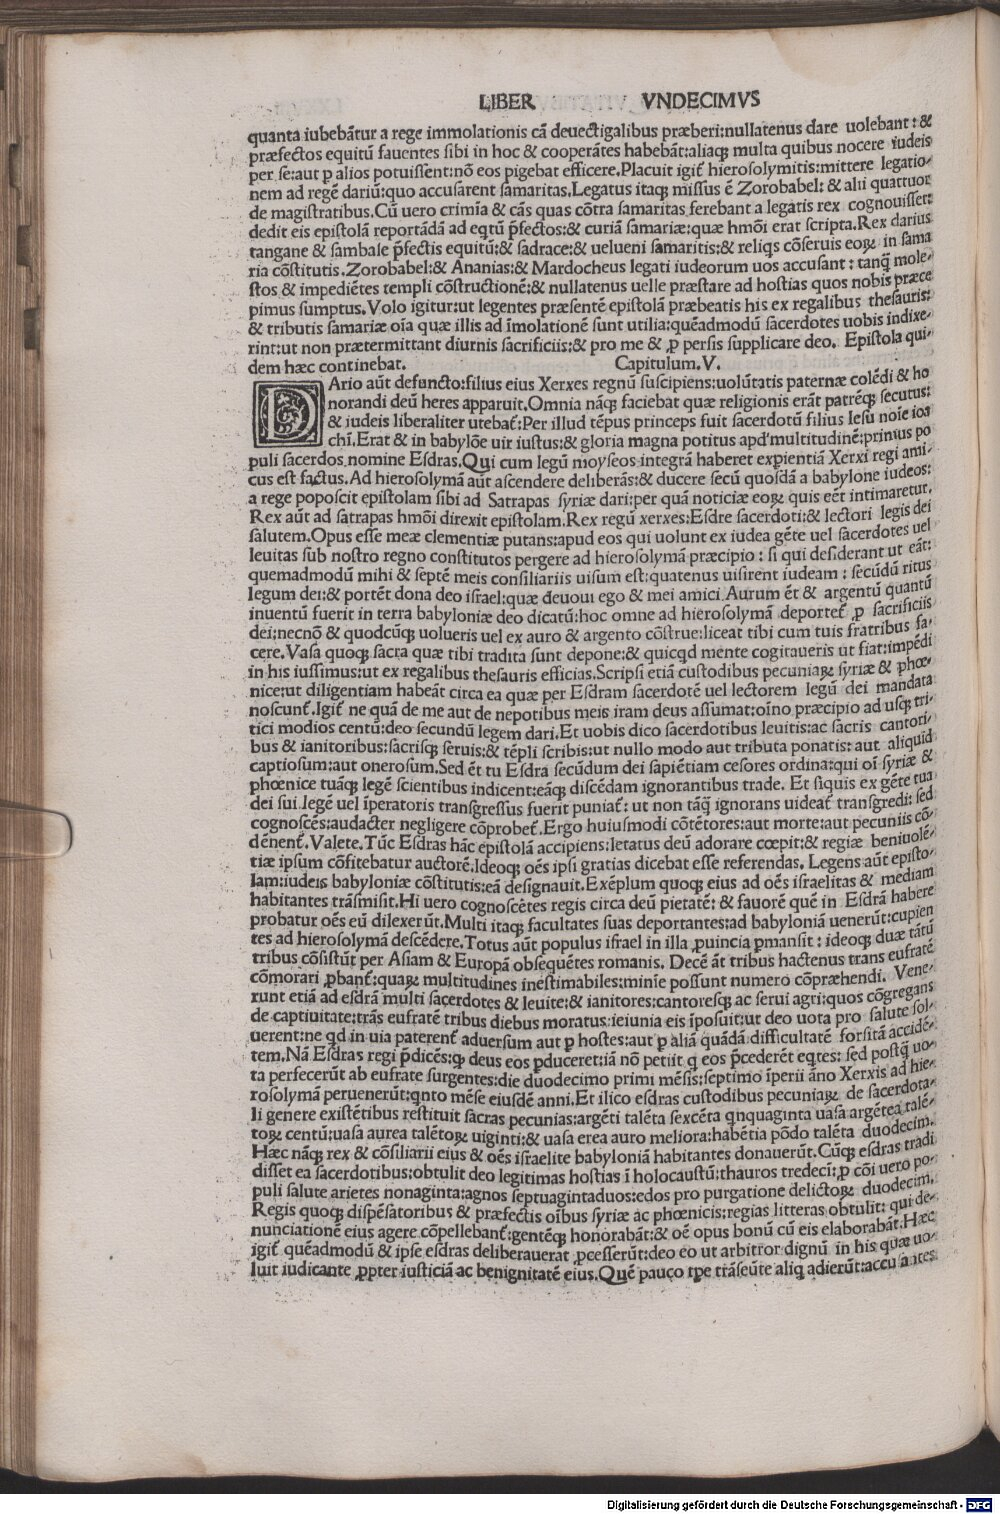 LIBER VNDECIMVS
quanta iubebãtur a rege immolationis cã deuectigalibus præberi:nullatenus dare uolebant: &
præfectos equitũ fauentes sibi in hoc & cooperãtes habebãt:aliaq; multa quibus nocere iudeis
per se:aut p alios potuissent:nõ eos pigebat efficere.Placuit igit̃ hierosolymitis:mittere legatio-
nem ad regẽ dariũ:quo accusarent samaritas.Legatus itaq; missus ẽ Zorobabel: & alii quattuor
de magistratibus.Cũ uero crimĩa & cãs quas cõtra samaritas ferebant a legatis rex cognouisset:
dedit eis epistolã reportãdã ad eqtũ p̃fectos:& curiã samariæ:quæ hmõi erat scripta.Rex darius
tangane & sambale p̃fectis equitũ:& sadrace:& uelueni samaritis:& reliqs cõseruis eoꝝ in sama
ria cõstitutis.Zorobabel:& Ananias:& Mardocheus legati iudeorum uos accusant: tanq̃ mole-
stos & impediẽtes templi cõstructionẽ:& nullatenus uelle præstare ad hostias quos nobis præce
pimus sumptus.Volo igitur:ut legentes præsentẽ epistolã præbeatis his ex regalibus thesauris:
& tributis samariæ oĩa quæ illis ad ĩmolationẽ sunt utilia:quẽadmodũ sacerdotes uobis indixe-
rint:ut non prætermittant diurnis sacrificiis:& pro me & ꝓ persis supplicare deo. Epistola qui-
dem hæc continebat. Capitulum.V.
DArio aũt defuncto:filius eius Xerxes regnũ suscipiens:uolũtatis paternæ colẽdi & ho
norandi deũ heres apparuit.Omnia nãq; faciebat quæ religionis erãt patrẽq; secutus:
& iudeis liberaliter utebat̃:Per illud tẽpus princeps fuit sacerdotũ filius Iesu noĩe ioa
chĩ.Erat & in babylõe uir iustus:& gloria magna potitus apd'multitudinẽ:primus po
puli sacerdos nomine Esdras.Qui cum legũ moyseos integrã haberet expientiã Xerxi regi ami-
cus est factus.Ad hierosolymã aũt ascendere deliberãs:& ducere secũ quosdã a babylone iudeos:
a rege poposcit epistolam sibi ad Satrapas syriæ dari:per quã noticiæ eoꝝ quis eẽt intimaretur.
Rex aũt ad satrapas hmõi direxit epistolam.Rex regũ xerxes:Esdre sacerdoti:& lectori legis dei
salutem.Opus esse meæ clementiæ putans:apud eos qui uolunt ex iudea gẽte uel sacerdotes uel
leuitas sub nostro regno constitutos pergere ad hierosolymã præcipio: si qui desiderant ut eãt:
quemadmodũ mihi & septẽ meis consiliariis uisum est:quatenus uisirent iudeam: secũdũ ritus
legum dei:& portẽt dona deo israel:quæ deuoui ego & mei amici.Aurum ẽt & argentũ quantũ
inuentũ fuerit in terra babyloniæ deo dicatũ:hoc omne ad hierosolymã deportet̃ ꝓ sacrificiis
dei;necnõ & quodcũq; uolueris uel ex auro & argento cõstrue:liceat tibi cum tuis fratribus fa-
cere.Vasa quoq; sacra quæ tibi tradita sunt depone:& quicqd mente cogitaueris ut fiat:impẽdi
in his iussimus:ut ex regalibus thesauris efficias.Scripsi etiã custodibus pecuniaꝝ syriæ & phœ-
nice:ut diligentiam habeãt circa ea quæ per Esdram sacerdotẽ uel lectorem legũ dei mandata
noscunt̃.Igit̃ ne quã de me aut de nepotibus meis iram deus assumat:oĩno præcipio ad usq; tri-
tici modios centũ:deo secundũ legem dari.Et uobis dico sacerdotibus leuitis:ac sacris cantori-
bus & ianitoribus:sacrisq; seruis:& tẽpli scribis:ut nullo modo aut tributa ponatis: aut aliquid
captiosum:aut onerosum.Sed ẽt tu Esdra secũdum dei sapiẽtiam cesores ordina:qui oĩ syriæ &
phœnice tuãq; legẽ scientibus indicent:eãq; discẽdam ignorantibus trade. Et siquis ex gẽte tua
dei sui legẽ uel ĩperatoris transgressus fuerit puniat̃: ut non tãq̃ ignorans uideat̃ transgredi: sed
cognoscẽs:audacter negligere cõprobet̃.Ergo huiusmodi cõtẽtores:aut morte:aut pecuniis cõ-
dẽnent̃.Valete.Tũc Esdras hãc epistolã accipiens:letatus deũ adorare cœpit:& regiæ beniuolẽ-
tiæ ipsum cõfitebatur auctorẽ.Ideoq; oẽs ipsi gratias dicebat esse referendas. Legens aũt episto-
lam:iudeis babyloniæ cõstitutis:eã designauit.Exẽplum quoq; eius ad oẽs israelitas & mediam
habitantes trãsmisit.Hi uero cognoscẽtes regis circa deũ pietatẽ: & fauorẽ quẽ in Esdrã habere
probatur oẽs eũ dilexerũt.Multi itaq; facultates suas deportantes:ad babyloniã uenerũt:cupien
tes ad hierosolymã descẽdere.Totus aũt populus israel in illa ꝓuincia pmansit: ideoq; duæ tãtũ
tribus cõsistũt per Asiam & Europã obsequẽtes romanis. Decẽ ãt tribus hactenus trans eufratẽ
cõmorari ꝓbant̃:quaꝝ multitudines inestimabiles:minĩe possunt numero cõpræhendi. Vene-
runt etiã ad esdrã multi sacerdotes & leuite:& ianitores:cantoresq; ac serui agri:quos cõgregans
de captiuitate:trãs eufratẽ tribus diebus moratus:ieiunia eis ĩposuit:ut deo uota pro salute sol-
uerent:ne qd in uia paterent̃ aduersum aut p hostes:aut p aliã quãdã difficultatẽ forsitã accidẽ-
tem.Nã Esdras regi p̃dicẽs:q; deus eos pduceret:iã nõ petiit q eos p̃cederẽt eqtes: sed postq̃ uo-
ta perfecerũt ab eufrate surgentes:die duodecimo primi mẽsis:septimo ĩperii ãno Xerxis ad hie-
rosolymã peruenerũt:qnto mẽse eiusdẽ anni.Et ilico esdras custodibus pecuniaꝝ de sacerdota-
li genere existẽtibus restituit sacras pecunias:argẽti talẽta sexcẽta qnquaginta uasa argẽtea talẽ-
toꝝ centũ:uasa aurea talẽtoꝝ uiginti:& uasa erea auro meliora:habẽtia põdo talẽta duodecim.
Hæc nãq; rex & cõsiliarii eius & oẽs israelite babyloniã habitantes donauerũt.Cũq; esdras tradi
disset ea sacerdotibus:obtulit deo legitimas hostias ĩ holocaustũ:thauros tredecĩ:ꝓ cõi uero po-
puli salute arietes nonaginta:agnos septuagintaduos:edos pro purgatione delictoꝝ duodecim.
Regis quoq; dispẽsatoribus & præfectis oĩbus syriæ ac phœnicis:regias litteras obtulit: qui de-
nunciationẽ eius agere cõpellebant̃:gentẽq; honorabãt:& oẽ opus bonũ cũ eis elaborabãt.Hæc
igit̃ quẽadmodũ & ipse esdras deliberauerat ꝓcesserũt:deo eo ut arbitror dignũ in his quæ uo-
luit iudicante ꝓpter iusticiã ac benignitatẽ eius.Quẽ pauco tpe trãseũte aliq adierũt:accusantes
Digitalisierung gefördert durch die Deutsche Forschungsgemeinschaft - DFG